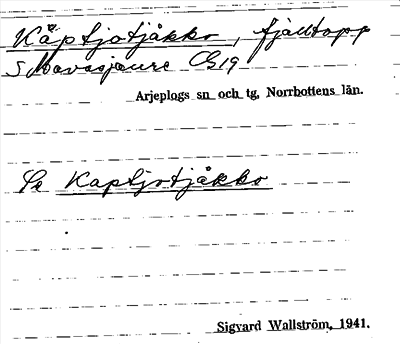 Käptjotjåkko, fjälltopp
S Mavasjaure C19
Arjeplogs sn och tg, Norrbottens län.
Se Kaptjotjåkko
Sigvard Wallström, 1941.